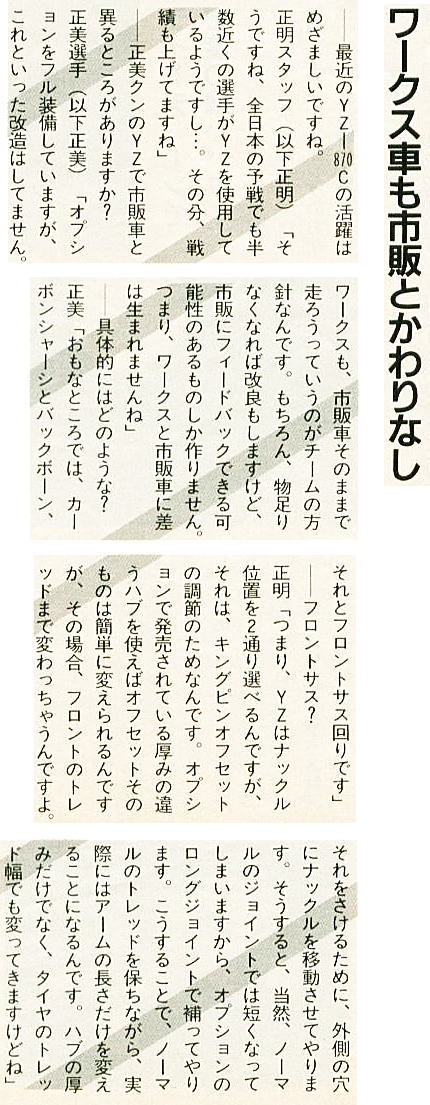 ワークス車も市販とかわりなし
――最近のYZ―870Cの活躍は
めざましいですね。
正明スタッフ（以下正明）「そ
うですね、全日本の予戦でも半
数近くの選手がYZを使用して
いるようですし…。その分、戦
績も上げてますね」
――正美クンのYZで市販車と
異るところがありますか？
正美選手（以下正美）「オプシ
ョンをフル装備していますが、
これといった改造はしてません。
ワークスも、市販車そのままで
走ろうっていうのがチームの方
針なんです。もちろん、物足り
なくなれば改良もしますけど、
市販にフィードバックできる可
能性のあるものしか作りません。
つまり、ワークスと市販車に差
は生まれませんね」
――具体的にはどのような？
正美「おもなところでは、カー
ボンシャーシとバックボーン、
それとフロントサス回りです」
――フロントサス？
正明「つまり、YZはナックル
位置を2通り選べるんですが、
それは、キングピンオフセット
の調節のためなんです。オプシ
ョンで発売されている厚みの違
うハブを使えばオフセットその
ものは簡単に変えられるんです
が、その場合、フロントのトレ
ッドまで変わっちゃうんですよ。
それをさけるために、外側の穴
にナックルを移動させてやりま
す。そうすると、当然、ノーマ
ルのジョイントでは短くなって
しまいますから、オプションの
ロングジョイントで補ってやり
ます。こうすることで、ノーマ
ルのトレッドを保ちながら、実
際にはアームの長さだけを変え
ることになるんです。ハブの厚
みだけでなく、タイヤのトレッ
ド幅でも変ってきますけどね」